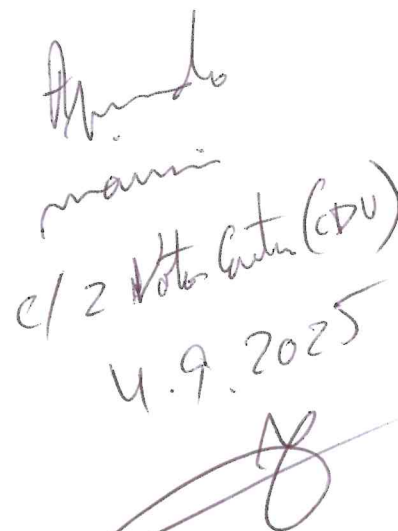 Aprovado
maioria
c/ 2 Votos Contra (CDU)
4.9.2025